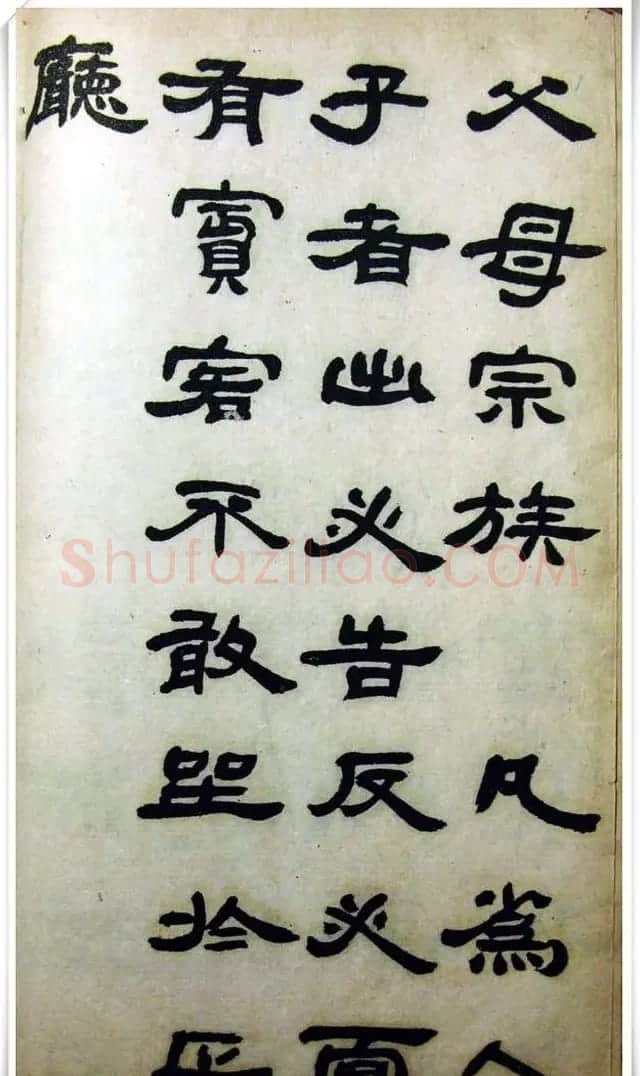 父母宗族 凡為人
子者出必告反必面
有賓客不敢坐於正
廳
Shufaziliao.COM